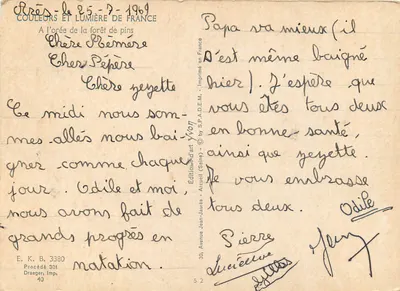 Arès, le 25-7-1969
COULEURS ET LUMIÈRE DE FRANCE
A l'orée de la forêt de pins
Chère Mémère
Cher Pépère
Chère zezette
Ce midi nous som-
mes allés nous bai-
gner comme chaque
jour. Odile et moi,
nous avons fait de
grands progrès en
natation.
E. K. B. 3380
Procédé 301
Draeger, Imp.
40
Editions d'art Yvon
30, Avenue Jean-Jaurès - Arcueil (Seine) - © by S.P.A.D.E.M. - Imprimé en France
Papa va mieux (il
s'est même baigné
hier). J'espère que
vous êtes tous deux
en bonne santé,
ainsi que zezette.
Je vous embrasse
tous deux.
Odile
Pierre
Lucienne